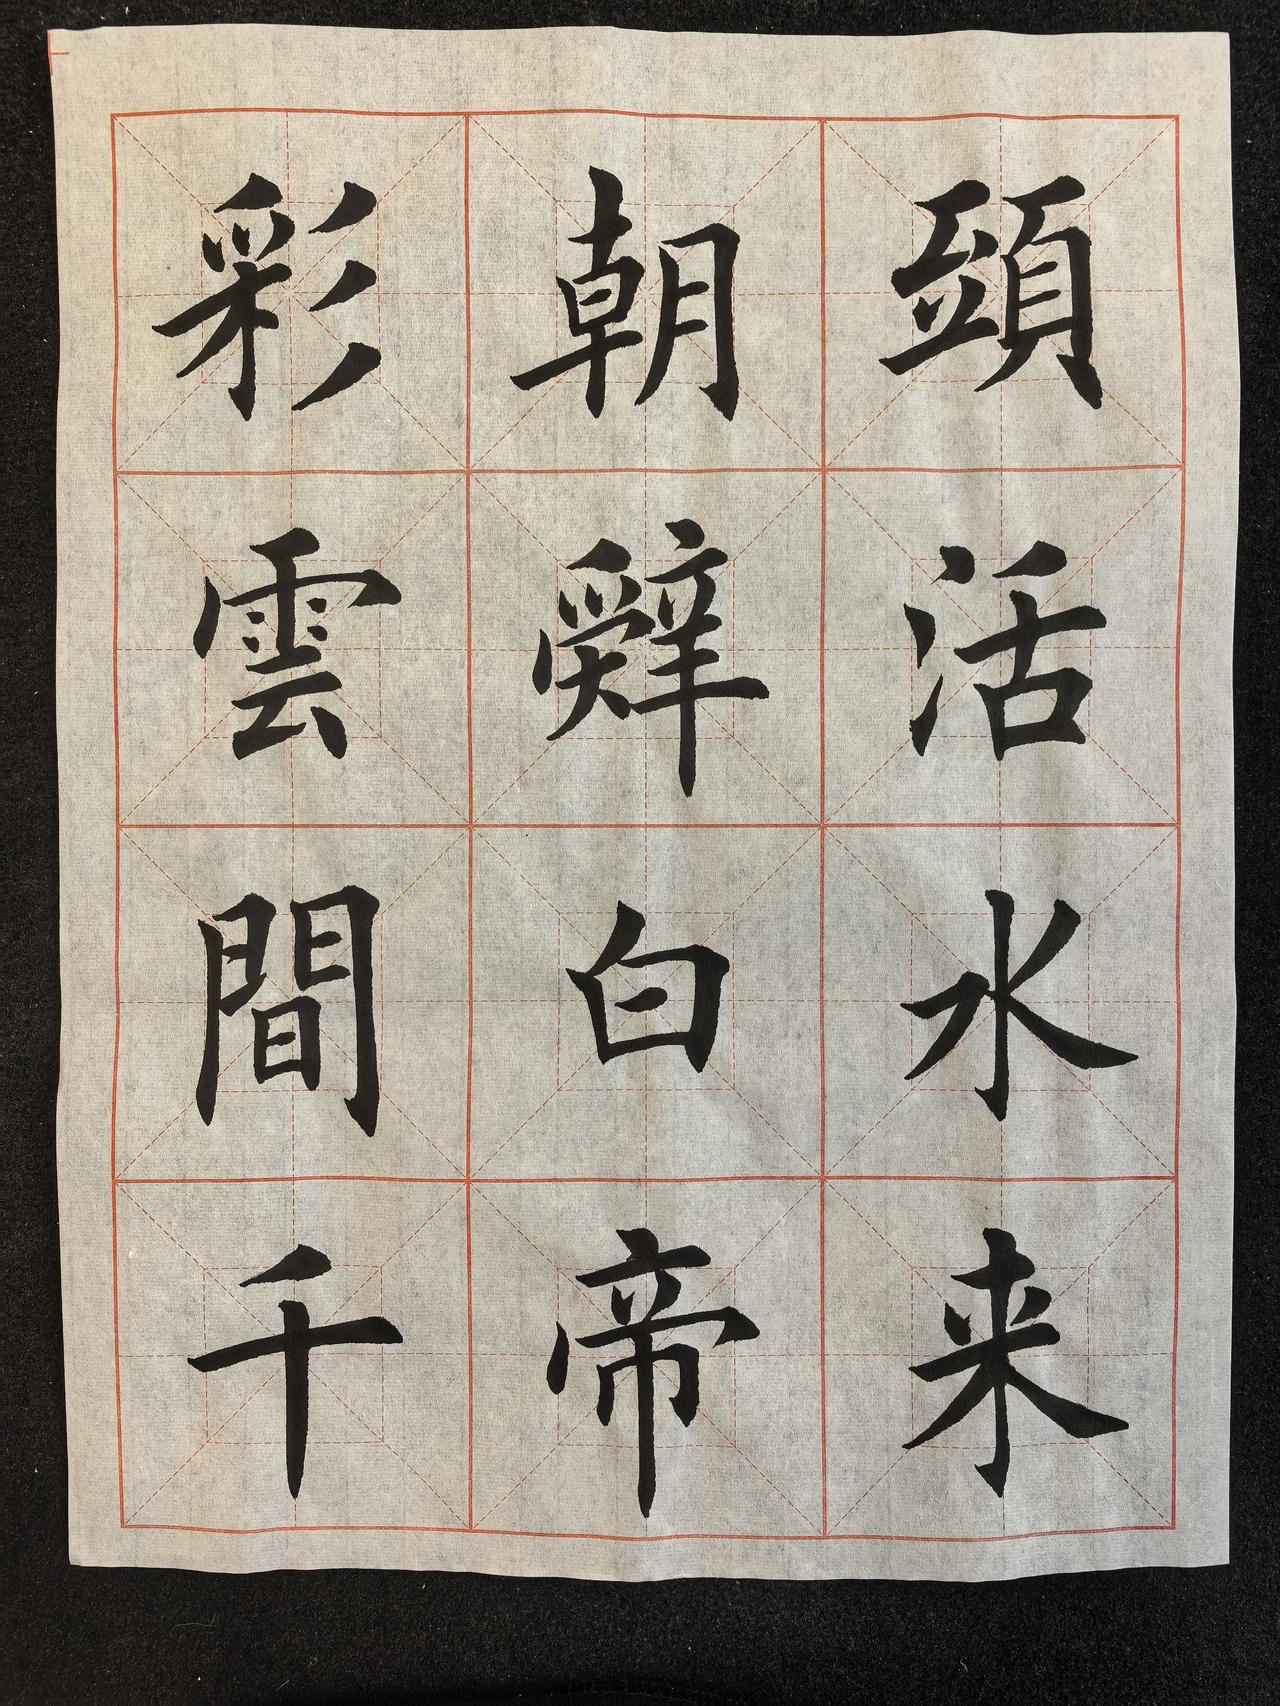 頭活水来
朝辤白帝
彩雲間千